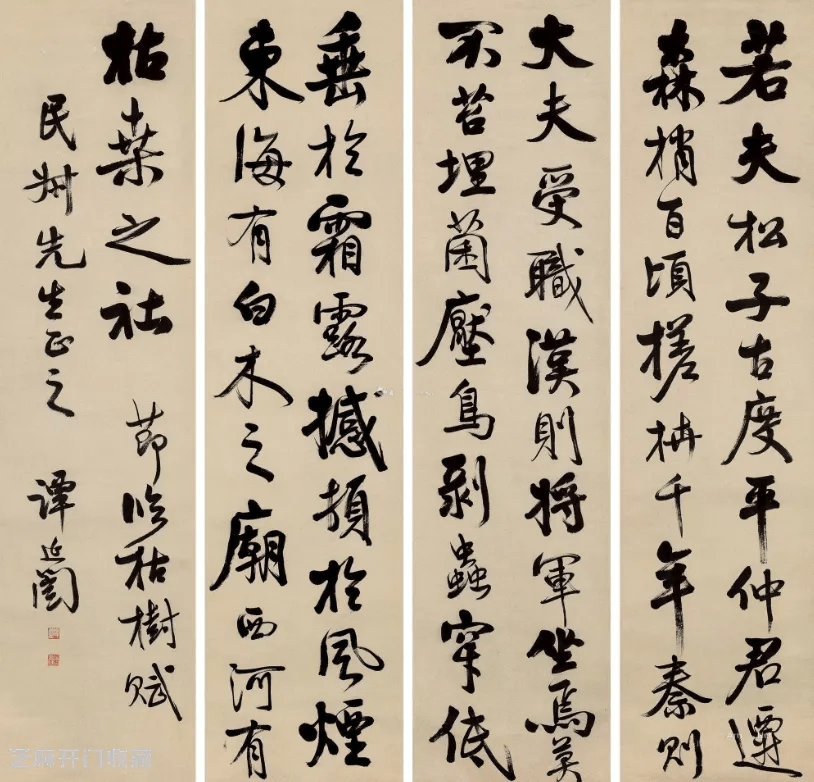 若夫松子古度平仲君遷
森梢百頃槎枿千年秦則
大夫受職漢則將軍坐焉莫
不苔埋菌壓鳥剝蟲穿低
垂於霜露撼頓於風煙
東海有白木之廟西河有
枯桑之社 節臨枯樹賦
民州先生正之 譚延闓
芝麻开门收藏